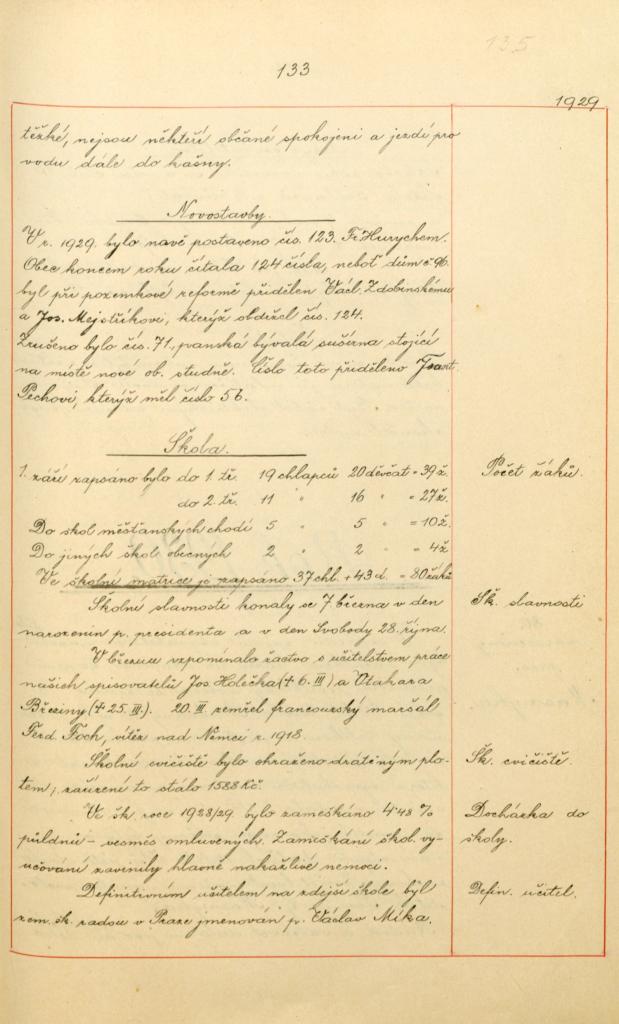 135
133
1929
těžké, nejsou někteří občané spokojeni a jezdí pro
vodu dále do kašny.
Novostavby.
V r. 1929. bylo nově postaveno čís. 123. Fr. Hurychem.
Obec koncem roku čítala 124 čísla, neboť dům č 96.
byl při pozemkové reformě přidělen Václ. Zdobinskému
a Jos. Mejstříkovi, kterýž obdržel čís. 124.
Zrušeno bylo čís. 71., panská bývalá sušírna stojící
na místě nové ob. studně. Číslo toto přiděleno Frant.
Pechovi, kterýž měl číslo 56.
Škola.
1. září zapsáno bylo do 1. tř. 19 chlapců 20 děvčat = 39 ž. Počet žáků.
do 2. tř. 11 " 16 " = 27 ž.
Do škol měšťanských chodí 5 " 5 " = 10 ž.
Do jiných škol obecných 2 " 2 " = 4 ž
Ve školní matrice je zapsáno 37 chl. + 43 d. = 80 žáků
Školní slavnosti konaly se 7. března v den Šk. slavnosti
narozenin p. presidenta a v den Svobody 28. října.
V březnu vzpomínalo žactvo s učitelstvem práce
našich spisovatelů Jos Holečka (+ 6. III) a Otakara
Březiny (+ 25. III.). 20. III. zemřel francouzský maršál
Ferd. Foch, vítěz nad Němci r. 1918.
Školní cvičiště bylo ohraženo drátěným plo- Šk. cvičiště.
tem, zařízení to stálo 1588 Kč.
Ve šk. roce 1928/29. bylo zameškáno 4·48 % Docházka do
půldnů - vesměs omluvených. Zameškání škol. vy- školy.
učování zavinily hlavně nakažlivé nemoci.
Definitivním učitelem na zdejší škole byl Defin. učitel.
zem. šk. radou v Praze jmenován p. Václav Míka.